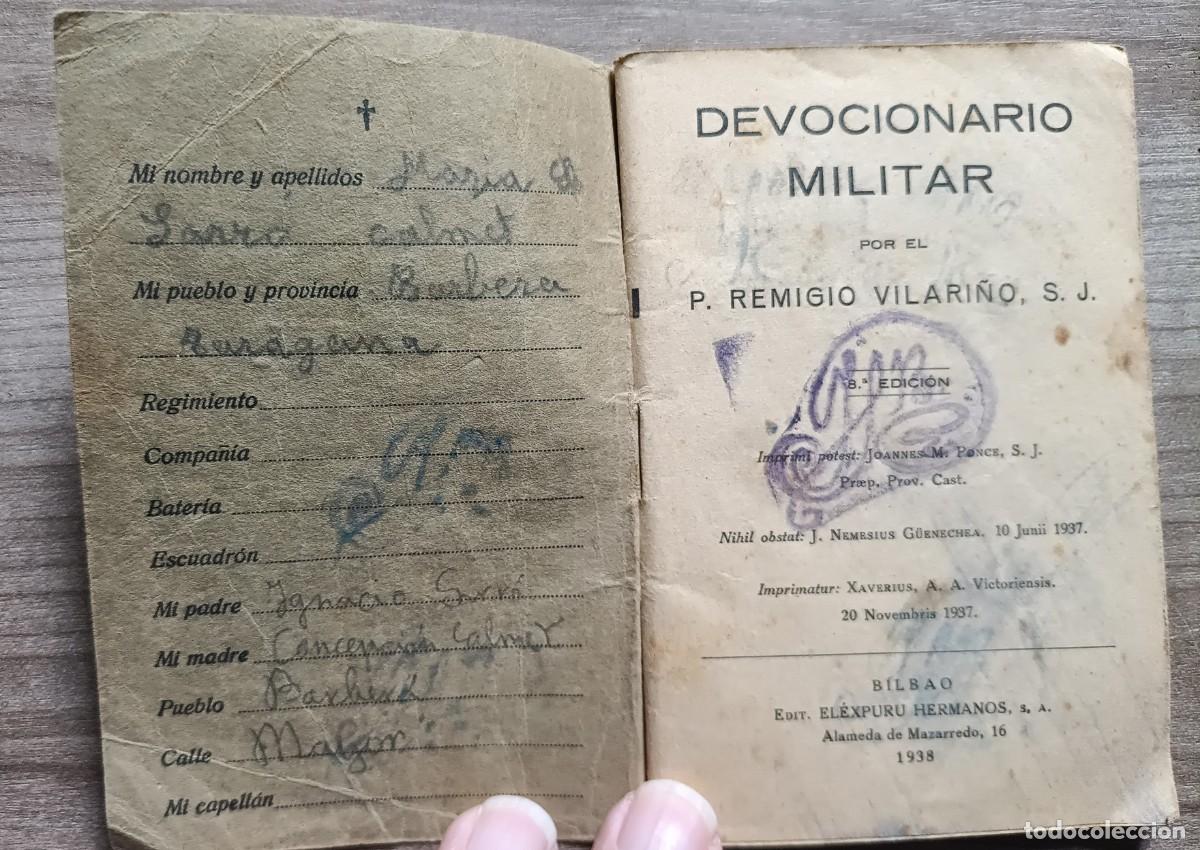 Mi nombre y apellidos Maria
Sarro calmet
Mi pueblo y provincia Barbera
Taragona
Regimiento
Compañía
Batería
Escuadrón
Mi padre Ignacio Sarró
Mi madre Concención Calmet
Pueblo Barberá
Calle Malgor
Mi capellán
DEVOCIONARIO
MILITAR
POR EL
P. REMIGIO VILARIÑO, S. J.
8.ª EDICIÓN
Imprimi potest: JOANNES M. PONCE, S. J.
Præp. Prov. Cast.
Nihil obstat: J. NEMESIUS GÜENECHEA, 10 Junii 1937.
Imprimatur: XAVERIUS, A. A. Victoriensis.
20 Novembris 1937.
BILBAO
EDIT. ELÉXPURU HERMANOS, S. A.
Alameda de Mazarredo, 16
1938
todocoleccion